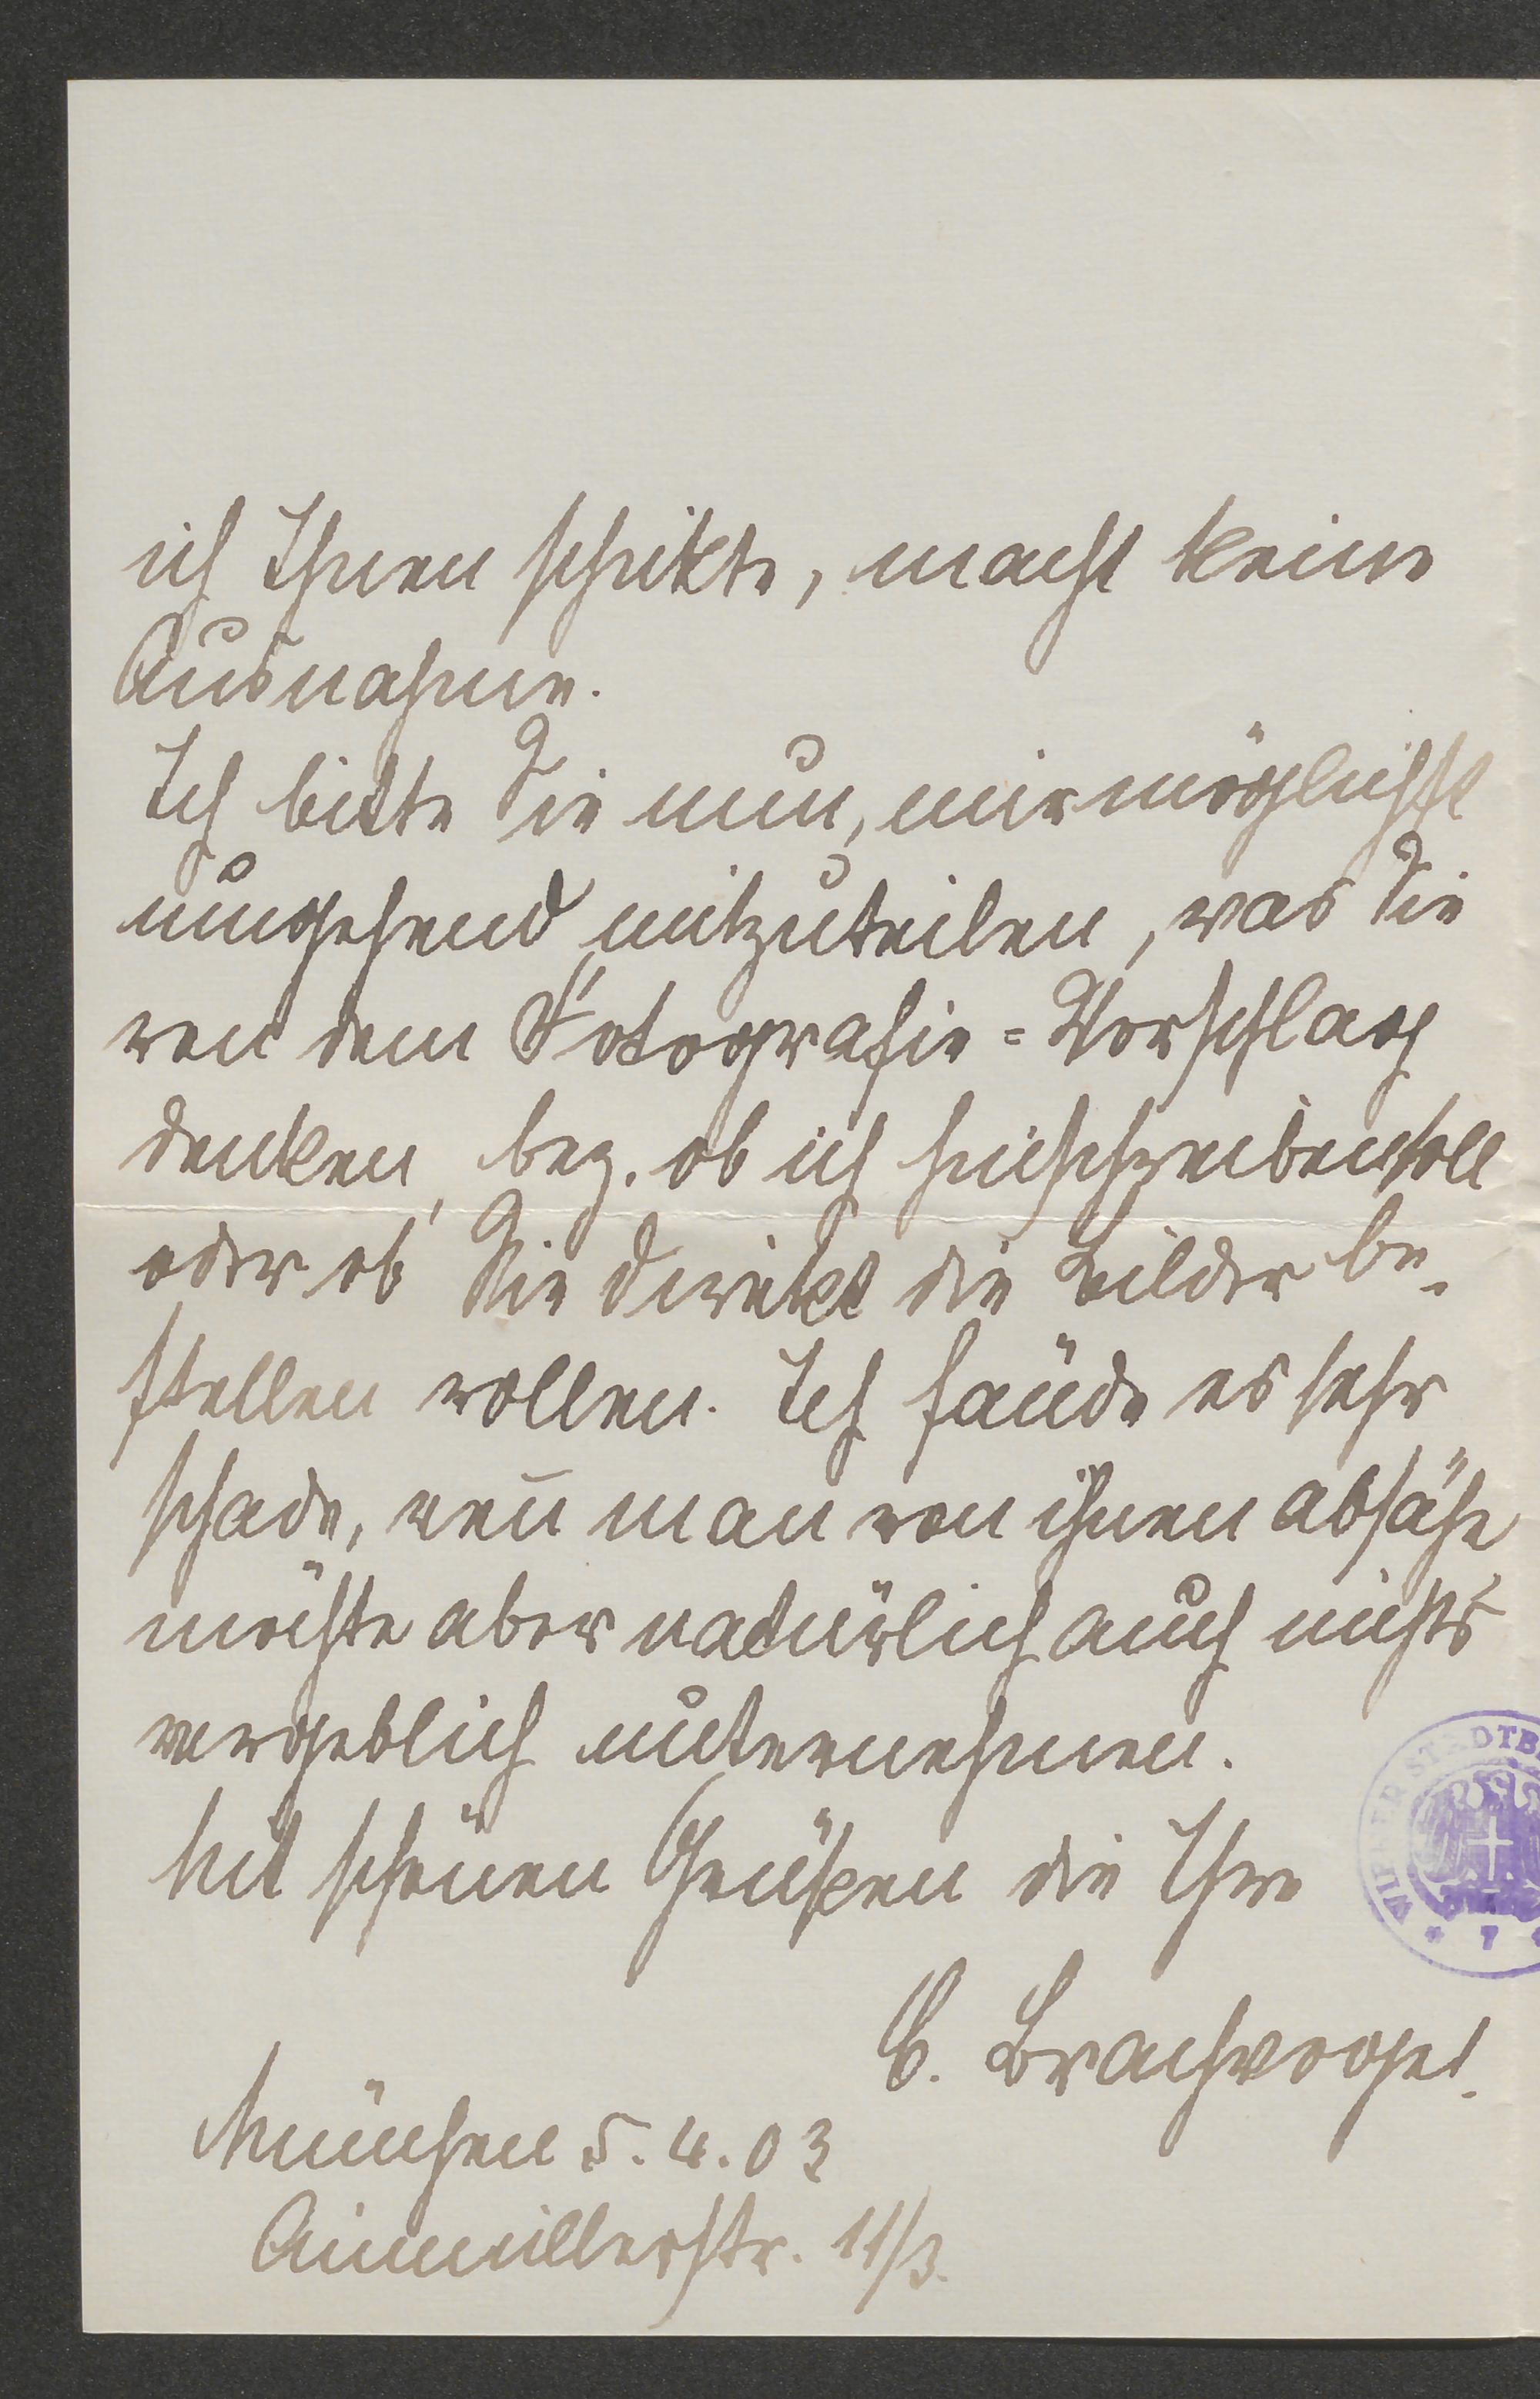 ich Ihnen schikte, macht keine
Ausnahme.
Ich bitte Sie nun, mir möglichst
umgehend mitzuteilen, was Sie
von dem Fotografie=Vorschlag
denken, bez. ob ich hinschreiben soll
oder ob Sie direkt die Bilder be-
stellen wollen. Ich fände es sehr
schade, wen̅ man von ihnen absähe
möchte aber natürlich auch nichts
vergeblich unternehmen.
Mit schönen Grüßen die Ihre
C. Brachvogel.
München 5. 4. 03
Ainmillerstr. 11/3.
WIENER STADTB
* 7